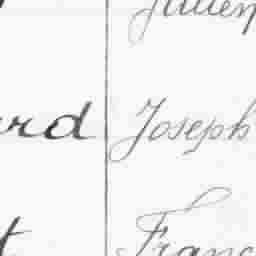 Julien
rd Joseph
t Franc